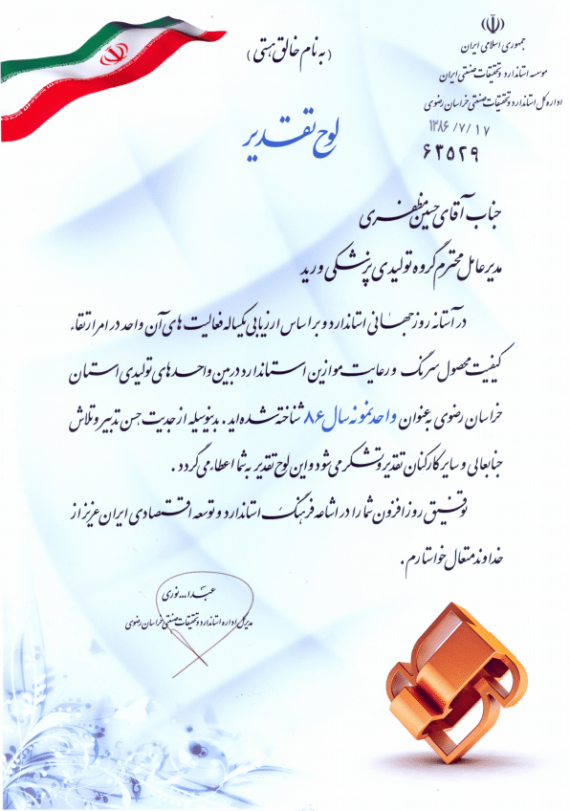 ( به نام خالق هستی )
جمهوری اسلامی ایران
موسسه استاندارد و تحقیقات صنعتی ایران
اداره کل استاندارد و تحقیقات صنعتی خراسان رضوی
۱۳۸۶/۷/۱۷
۶۳۵۲۹
لوح تقدیر
جناب آقای حسین مظفری
مدیرعامل محترم گروه تولیدی پزشکی ورید
در آستانه روز جهانی استاندارد و بر اساس ارزیابی یکساله فعالیت های آن واحد در امر ارتقاء
کیفیت محصول سرنگ و رعایت موازین استاندارد در بین واحدهای تولیدی استان
خراسان رضوی به عنوان واحد نمونه سال ۸۶ شناخته شده اید . بدینوسیله از جدیت حسن تدبیر و تلاش
جنابعالی و سایر کارکنان تقدیر و تشکر می شود و این لوح تقدیر به شما اعطاء می گردد .
توفیق روز افزون شما را در اشاعه فرهنگ استاندارد و توسعه اقتصادی ایران عزیز از
خداوند متعال خواستارم .
عبدا... نوری
مدیرکل اداره استاندارد و تحقیقات صنعتی خراسان رضوی